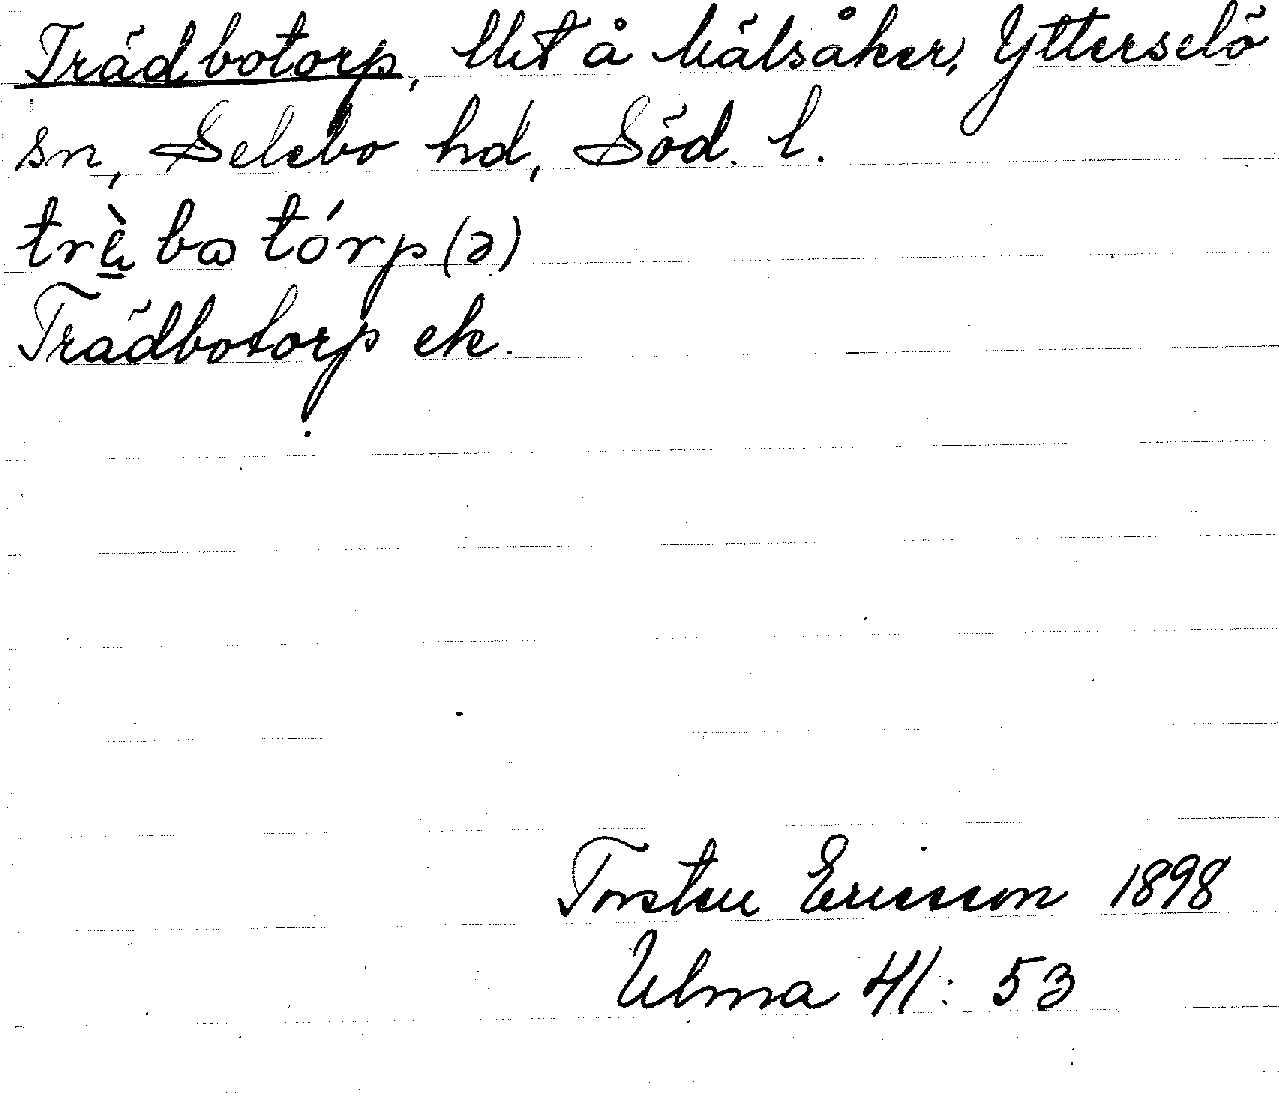 Trädbotorp, lht å Mälsåker, Ytterselö
sn, Selebo hd, Söd. l.
trὲ̱ bɷ tórp(ə)
Trädbotorp ek.
Torsten Ericsson 1898
Ulma 41: 53